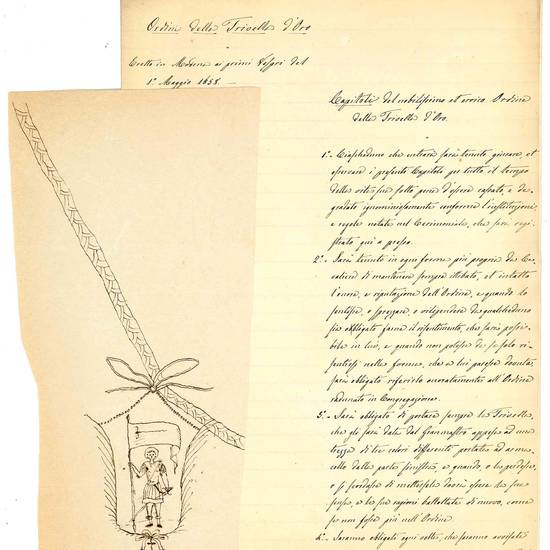 Ordine della Trivella d'Oro
Eretto in Modena ai primi Vespri del
1º Maggio 1658. —
Capitoli del nobilissimo et eroico Ordine
della Trivella d'Oro.
1º- Ciascheduno che entrerà sarà tenuto giurare, et
osservare i presenti Capitoli per tutto il tempo
della vita sua sotto pena d'essere cassato, e de-
gradato ignominiosamente conforme l'instituzione,
e regole notate nel Cerimoniale, che sarà regi-
strato qui a presso.
2º- Sarà tenuto in ogni forma più propria da Ca-
valiere di mantenere sempre illibato, et intatto
l'onore, e riputazione dell'Ordine, e quando lo
sentisse, o sprezzare, o vilipendere da qualcheduno
sia obbligato farne il risentimento, che sarà possi-
bile in lui, e quando non potesse da se solo ri-
sentirsi nella forma, che a lui paresse dovuta
sarà obligato riferirlo onoratamente all'Ordine
radunato in Congregazione.
3º- Sarà obligato di portare sempre la Trivella,
che gli sarà data dal Granmastro appesa ad una
trezza di tre colori differenti portata ad arma-
collo dalla parte sinistra, e quando, o la perdesse,
o si scordasse di mettersela dovrà esser la sua
scusa, o le sue ragioni ballottate di nuovo, come
se non fosse più nell'Ordine.
4º- Saranno obligati ogni volta, che saranno avvisati